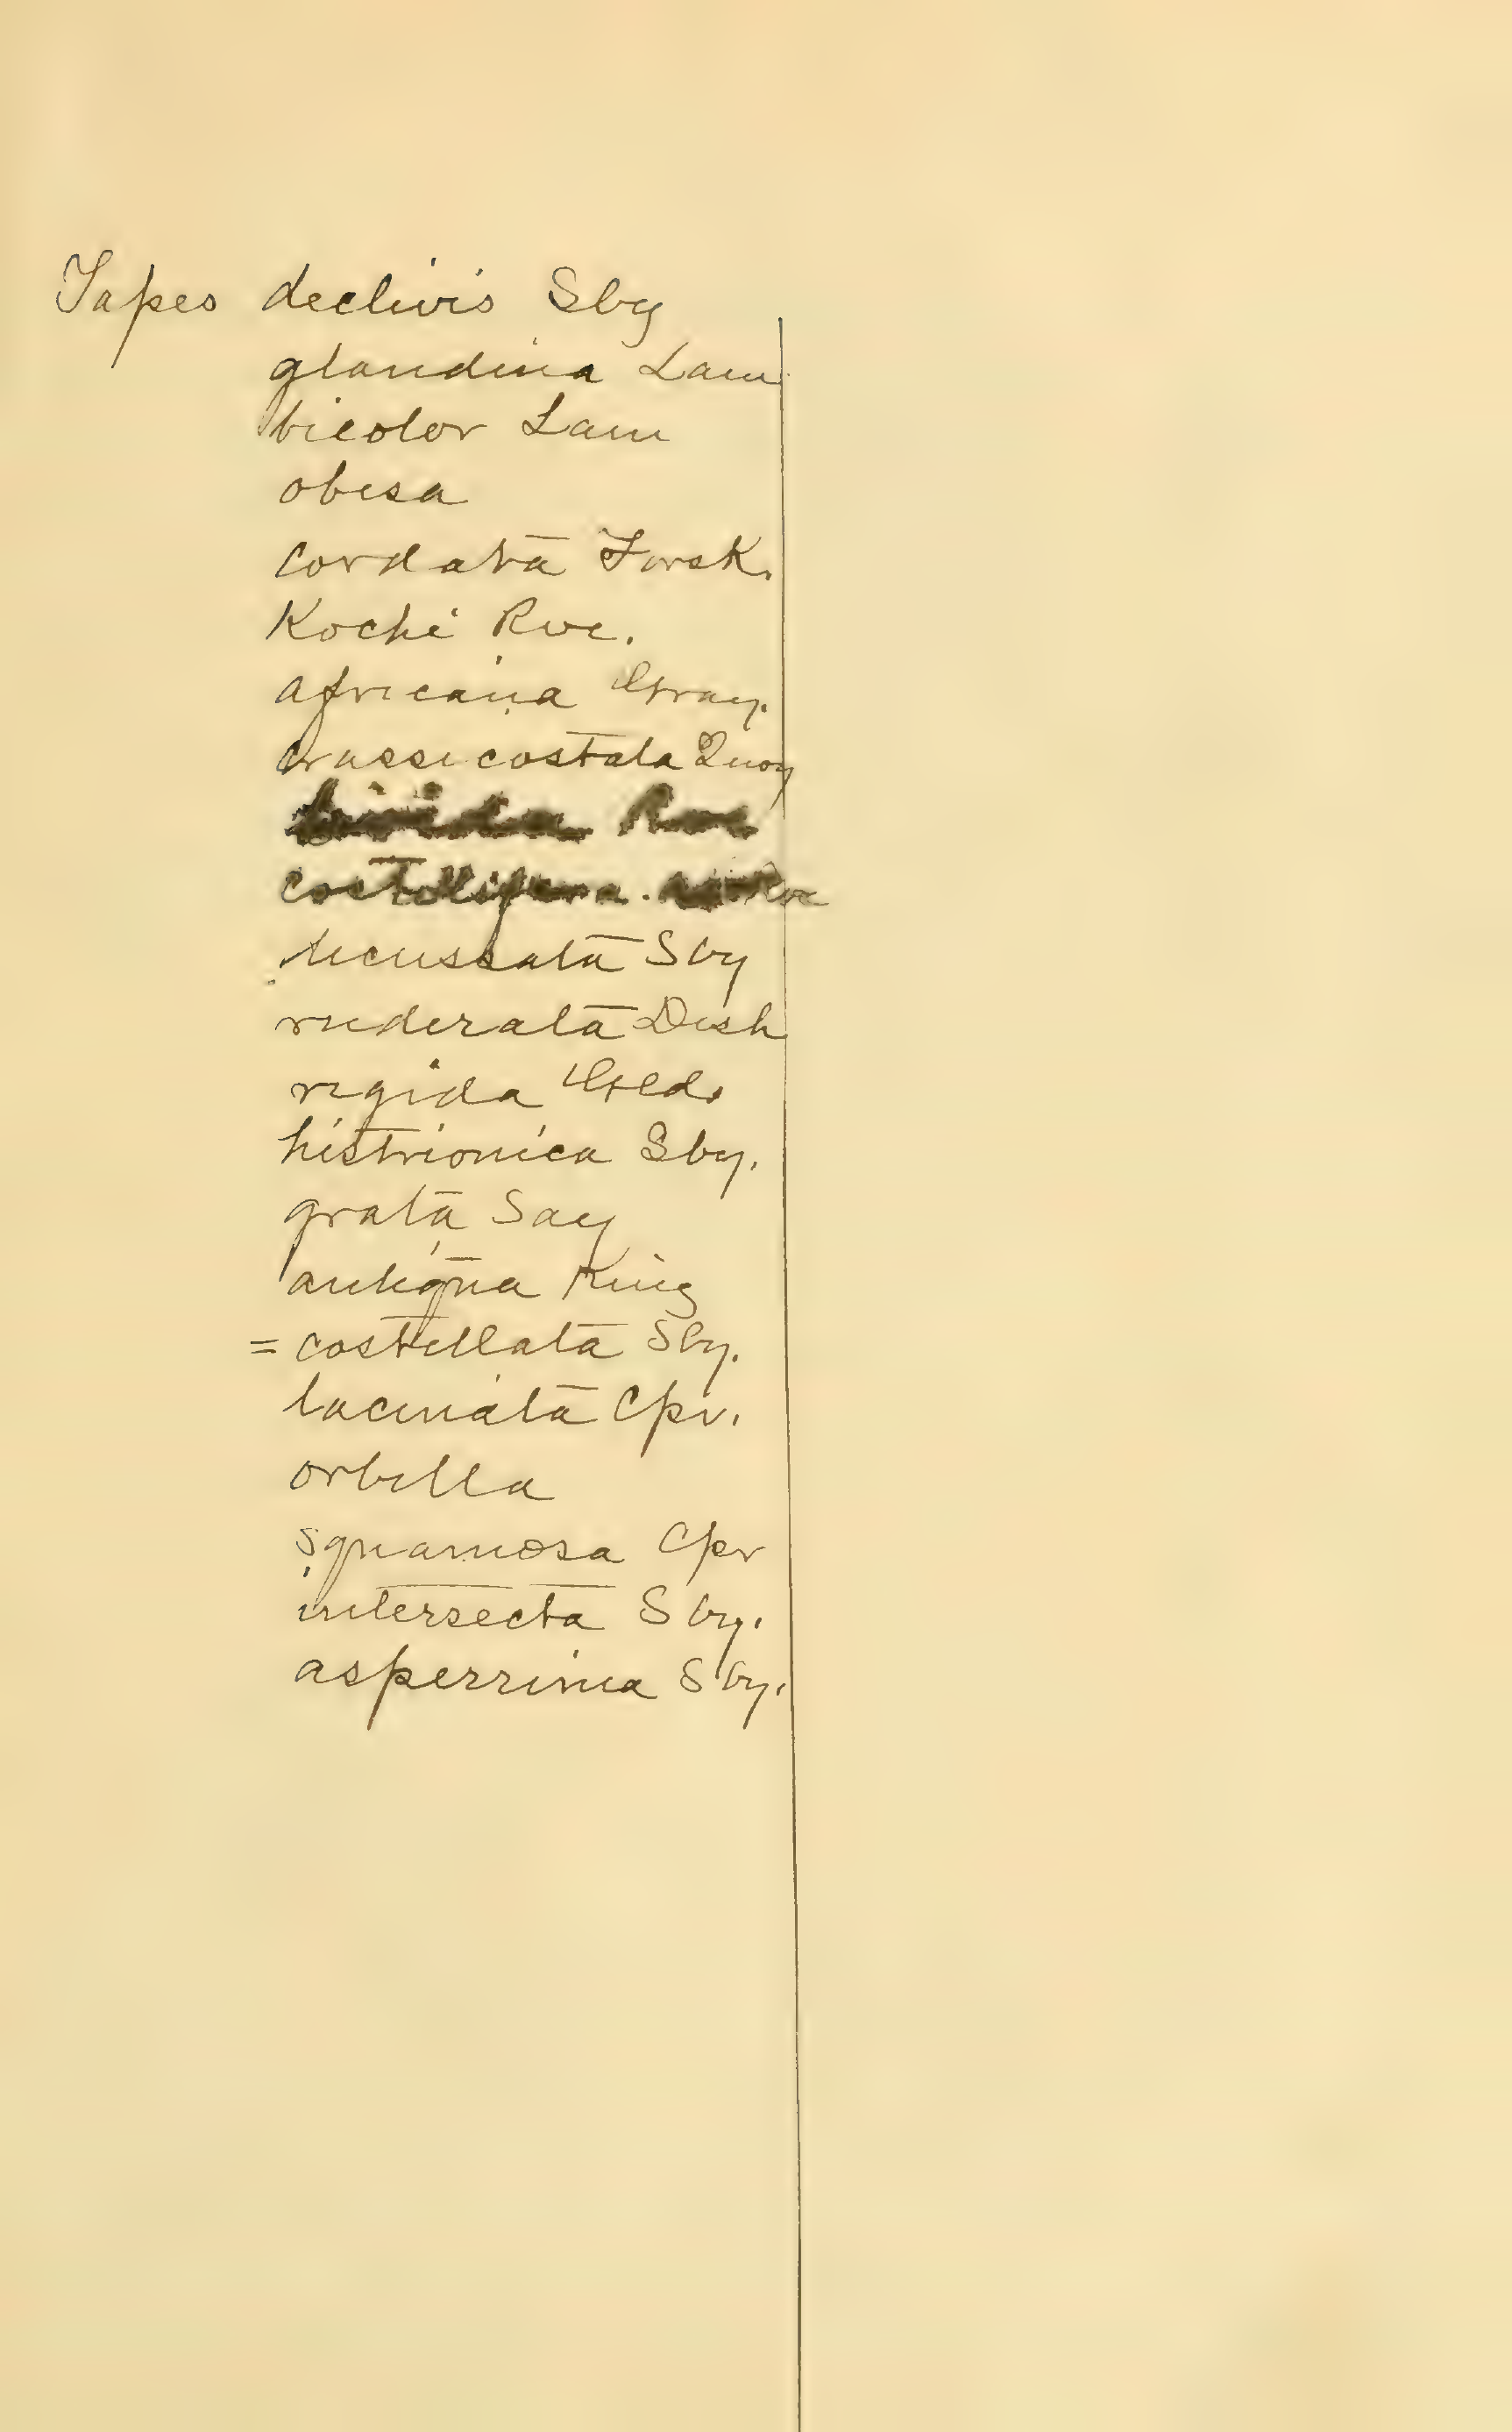 Tapes declivis Sby
glandina Lam
bicolor Lam
obesa
cordata Forsk.
Kochi Rve.
africana Gray.
crassicostata Quoy
Rve
costellifera. Rve
decussata Sby
ruderata Desh
rigida Gld.
histrionica Sby.
grata Say
antiqua King
= costellata Sby.
laciniata Cpr.
orbella
squamosa Cpr
intersecta Sby.
asperrima Sby.